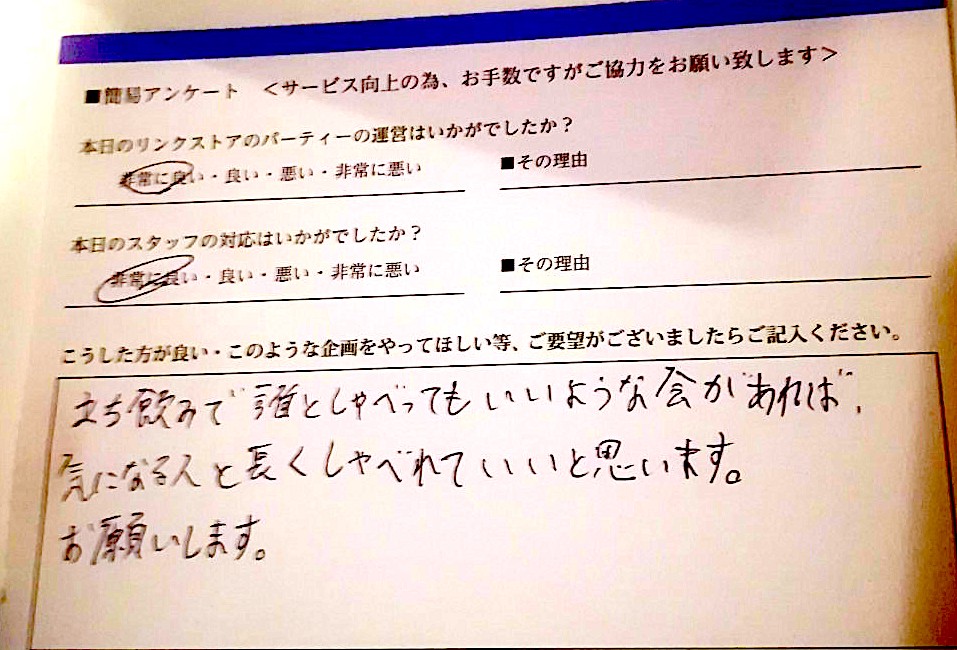 ■簡易アンケート <サービス向上の為、お手数ですがご協力をお願い致します>
本日のリンクストアのパーティーの運営はいかがでしたか？
非常に良い・良い・悪い・非常に悪い ■その理由
本日のスタッフの対応はいかがでしたか？
非常に良い・良い・悪い・非常に悪い ■その理由
こうした方が良い・このような企画をやってほしい等、ご要望がございましたらご記入ください。
立ち飲みで誰としゃべってもいいような会があれば、
気になる人と長くしゃべれていいと思います。
お願いします。